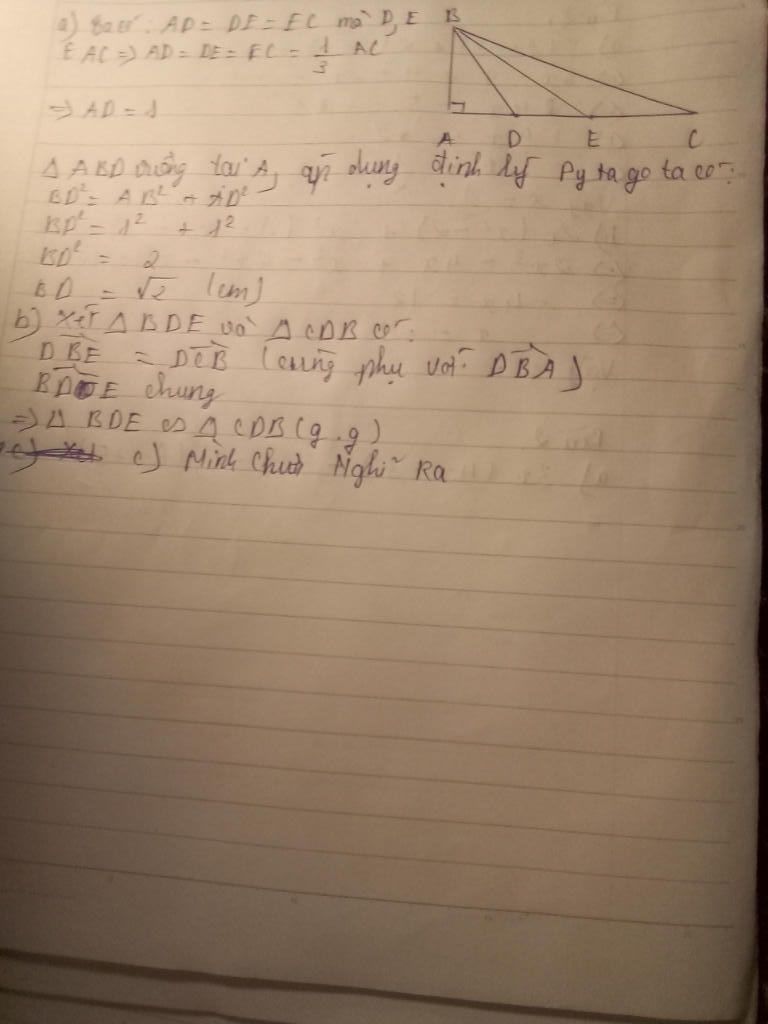 a) Ta có: AD = DE = EC mà D, E
∈ AC => AD = DE = EC = 1/3 AC
=> AD = 1
B
A D E C
Δ ABD vuông tại A, áp dụng định lý Py ta go ta có:
BD² = AB² + AD²
BD² = 1² + 1²
BD² = 2
BD = √2 (cm)
b) Xét Δ BDE và Δ CDB có:
DBE = DCB (cùng phụ với DBA)
BDE chung
=> Δ BDE ∽ Δ CDB (g.g)
c) Mình chưa Nghĩ Ra